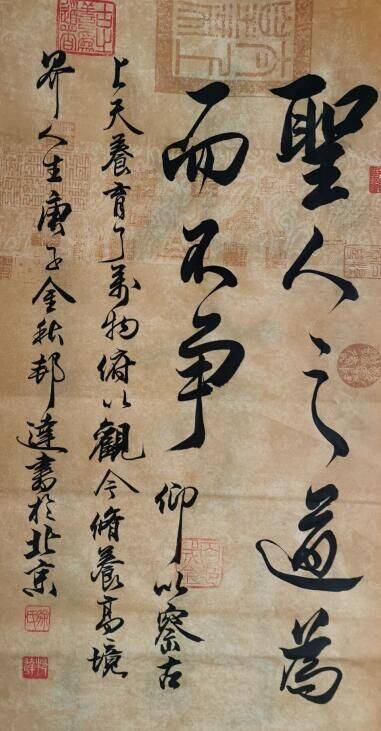 聖人之道為
而不争
仰以察古
上天養育了萬物俯以觀今脩養高境
界人生庚子金秋邦達書於北京